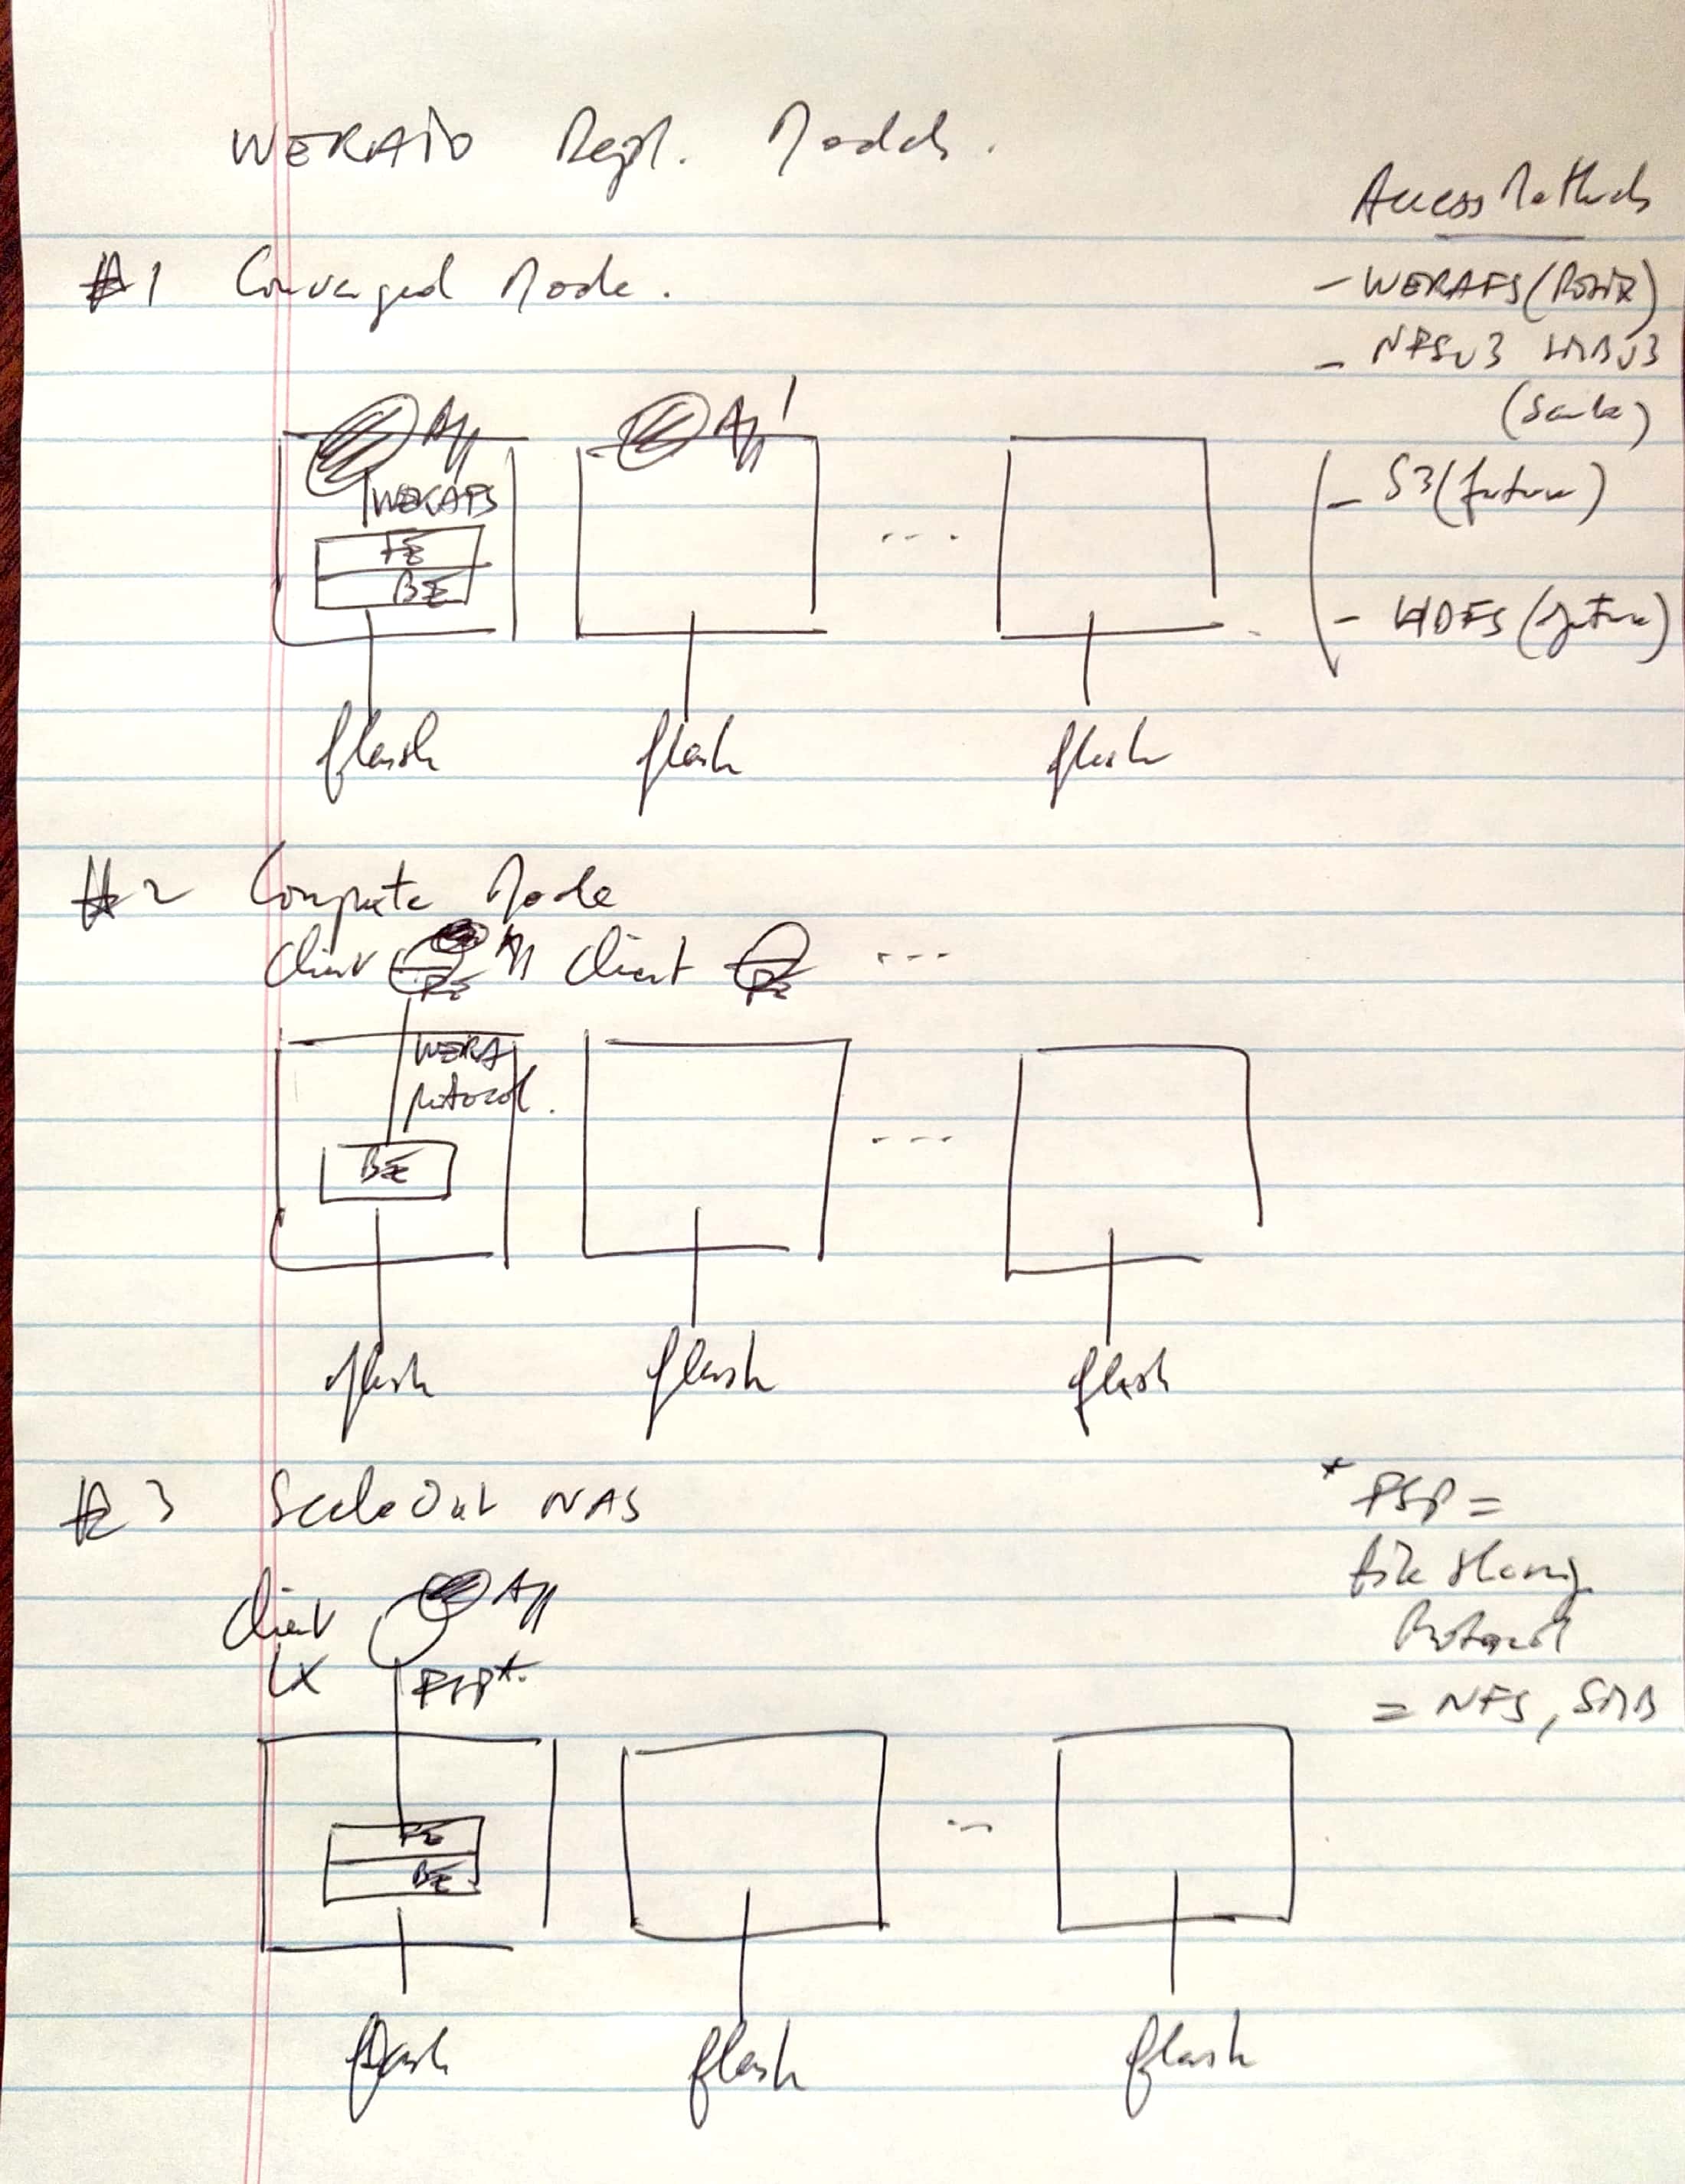 WEKAIO Depl. Models.
Access Methods
#1 Converged Mode.
- WEKAFS (Posix)
- NFSv3 SMBv3
App
App'
- S3 (future)
WEKAFS
FE
BE
- HDFS (future)
flash flash flash
#2 Compute Mode
Client App Client ...
FE FE
WEKA
protocol.
BE
flash flash flash
#3 ScaleOut NAS
* FSP =
file sharing
Protocol
= NFS, SMB
Client App
LX FSP*
FE
BE
flash flash flash